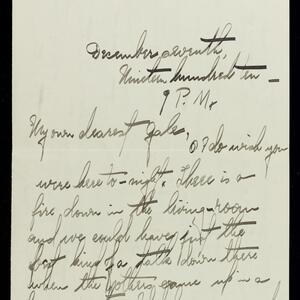 December seventh,
Nineteen hundred ten —
9 P.M.
My own dearest Gale,
O I do wish you
were here to-night. There is a
fire, down in the living-room
and we could have just the
best kind of a talk down there
when the others came up in a